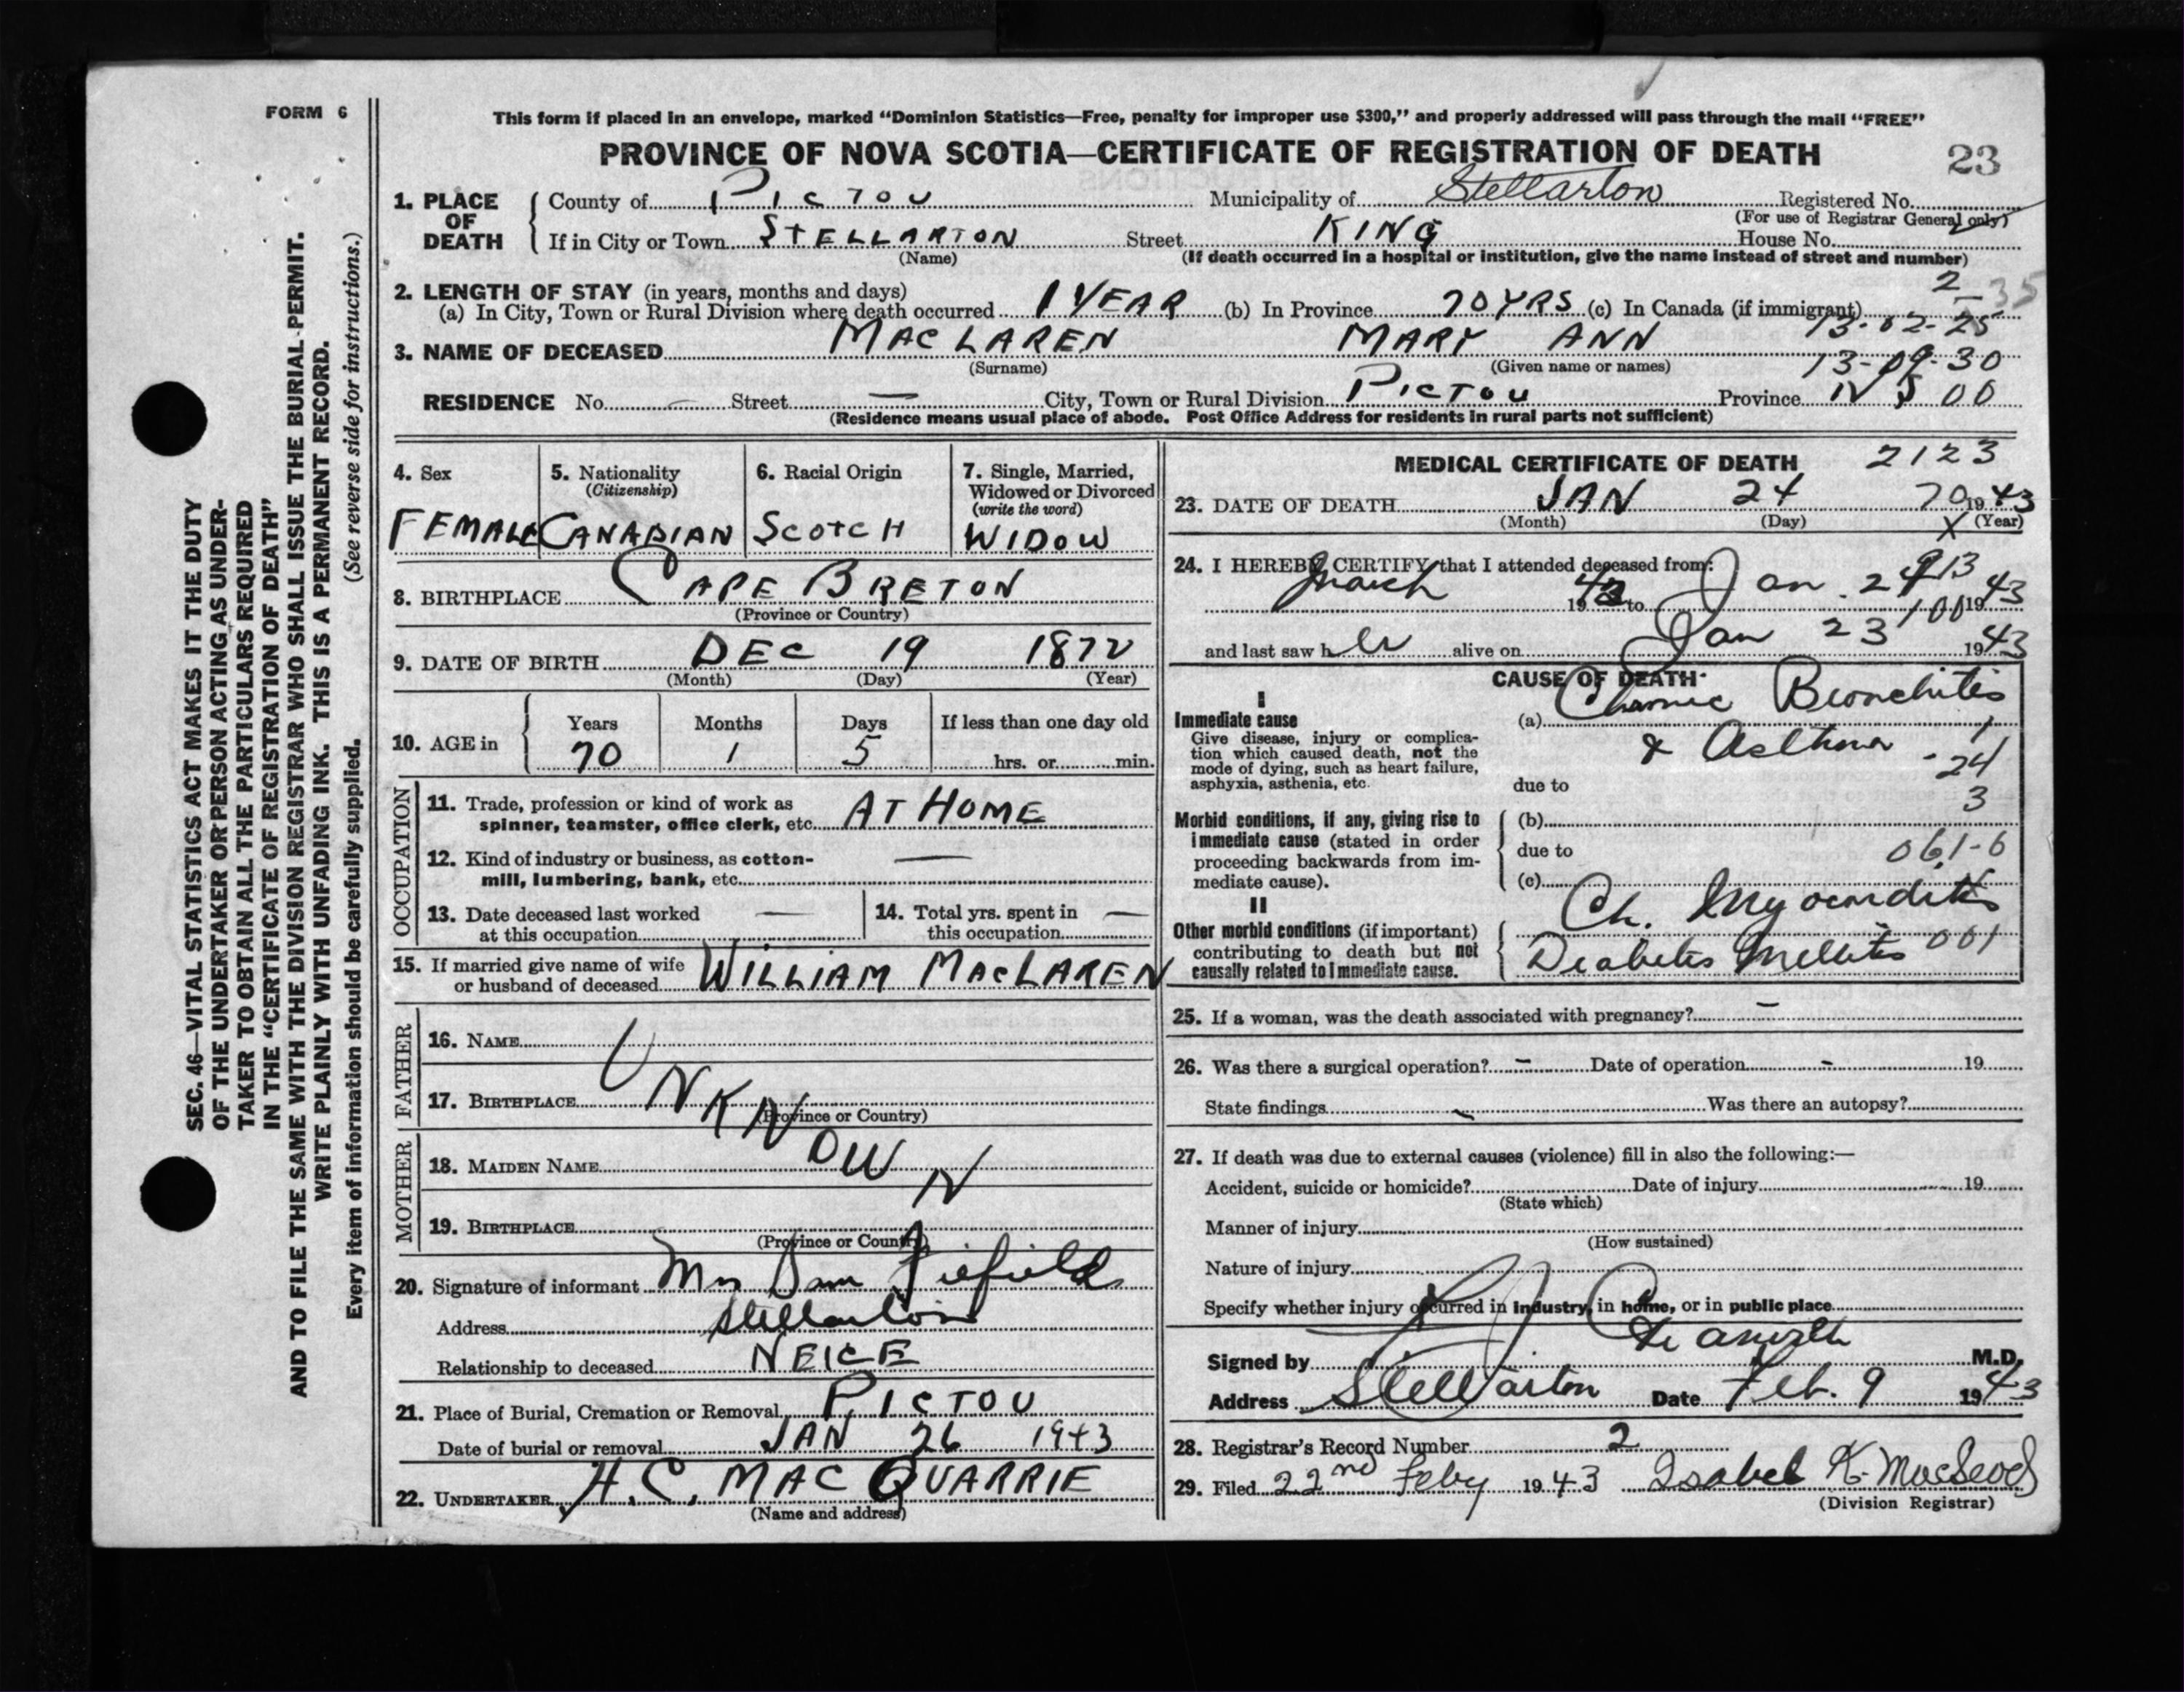 FORM 6
This form if placed in an envelope, marked “Dominion Statistics—Free, penalty for improper use $300,” and properly addressed will pass through the mail “FREE”
PROVINCE OF NOVA SCOTIA—CERTIFICATE OF REGISTRATION OF DEATH 23
1. PLACE OF DEATH County of PICTOU Municipality of Stellarton Registered No.
(For use of Registrar General only)
If in City or Town STELLARTON Street KING House No.
(Name) (If death occurred in a hospital or institution, give the name instead of street and number)
2. LENGTH OF STAY (in years, months and days) 2 35
(a) In City, Town or Rural Division where death occurred 1 YEAR (b) In Province 70 YRS (c) In Canada (if immigrant)
13-02-25
3. NAME OF DECEASED MACLAREN MARY ANN
(Surname) (Given name or names) 13-09-30
RESIDENCE No. — Street — City, Town or Rural Division PICTOU Province N S 00
(Residence means usual place of abode. Post Office Address for residents in rural parts not sufficient)
4. Sex
FEMALE
5. Nationality
(Citizenship)
CANADIAN
6. Racial Origin
SCOTCH
7. Single, Married,
Widowed or Divorced
(write the word)
WIDOW
8. BIRTHPLACE CAPE BRETON
(Province or Country)
9. DATE OF BIRTH DEC 19 1872
(Month) (Day) (Year)
10. AGE in Years Months Days If less than one day old
70 1 5 hrs. or min.
OCCUPATION
11. Trade, profession or kind of work as
spinner, teamster, office clerk, etc. AT HOME
12. Kind of industry or business, as cotton-
mill, lumbering, bank, etc. —
13. Date deceased last worked
at this occupation —
14. Total yrs. spent in
this occupation —
15. If married give name of wife
or husband of deceased WILLIAM MACLAREN
FATHER
16. NAME
17. BIRTHPLACE
(Province or Country)
UNKNOWN
MOTHER
18. MAIDEN NAME
19. BIRTHPLACE
(Province or Country)
20. Signature of informant Mrs Sam Fiefield
Address Stellarton
Relationship to deceased NEICE
21. Place of Burial, Cremation or Removal PICTOU
Date of burial or removal JAN 26 1943
22. UNDERTAKER H.C. MACQUARRIE
(Name and address)
MEDICAL CERTIFICATE OF DEATH 2123
23. DATE OF DEATH JAN 24 70 1943
(Month) (Day) X (Year)
24. I HEREBY CERTIFY that I attended deceased from:
March 1942 to Jan. 24 1943
913
100
and last saw her alive on Jan 23 1943
CAUSE OF DEATH
I
Immediate cause
Give disease, injury or complica-
tion which caused death, not the
mode of dying, such as heart failure,
asphyxia, asthenia, etc.
(a) Chronic Bronchitis
& Asthma 1
24
due to
3
Morbid conditions, if any, giving rise to
immediate cause (stated in order
proceeding backwards from im-
mediate cause).
(b)
due to 061-6
(c)
II
Other morbid conditions (if important)
contributing to death but not
causally related to immediate cause.
Ch. Myocarditis
Diabetes Mellitus 001
25. If a woman, was the death associated with pregnancy? —
26. Was there a surgical operation? — Date of operation — 19
State findings — Was there an autopsy?
27. If death was due to external causes (violence) fill in also the following:—
Accident, suicide or homicide? Date of injury 19
(State which)
Manner of injury
(How sustained)
Nature of injury
Specify whether injury occurred in industry, in home, or in public place
Signed by M.D.
Address Stellarton Date Feb. 9 1943
28. Registrar's Record Number 2
29. Filed 22nd Feby 1943 Isabel K. MacLeod
(Division Registrar)
SEC. 46—VITAL STATISTICS ACT MAKES IT THE DUTY
OF THE UNDERTAKER OR PERSON ACTING AS UNDER-
TAKER TO OBTAIN ALL THE PARTICULARS REQUIRED
IN THE “CERTIFICATE OF REGISTRATION OF DEATH”
AND TO FILE THE SAME WITH THE DIVISION REGISTRAR WHO SHALL ISSUE THE BURIAL PERMIT.
WRITE PLAINLY WITH UNFADING INK. THIS IS A PERMANENT RECORD.
Every item of information should be carefully supplied. (See reverse side for instructions.)